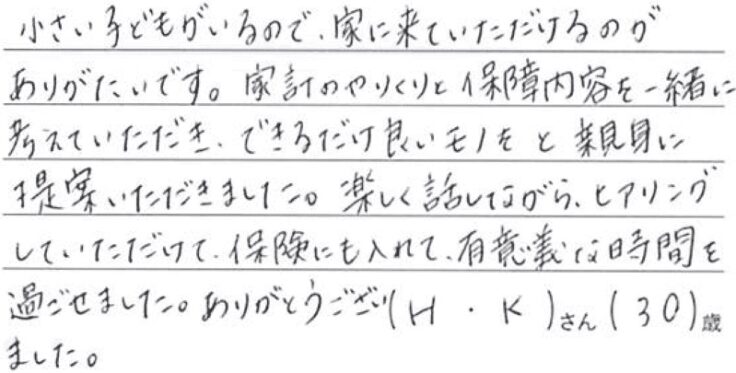 小さい子どもがいるので、家に来ていただけるのが
ありがたいです。家計のやりくりと保障内容を一緒に
考えていただき、できるだけ良いモノをと親身に
提案いただきました。楽しく話しながら、ヒアリング
していただけて、保険にも入れて、有意義な時間を
過ごせました。ありがとうござい(H・K)さん(30)歳
ました。